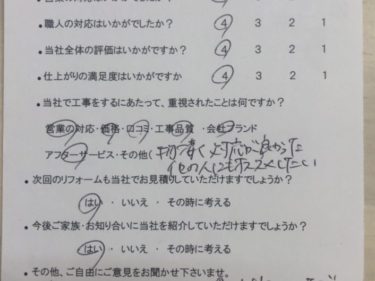 ・職人の対応はいかがでしたか? 4 3 2 1
・当社全体の評価はいかがですか 4 3 2 1
・仕上がりの満足度はいかがですか 4 3 2 1
・当社で工事をするにあたって、重視されたことは何ですか?
営業の対応・価格・口コミ・工事品質・会社ブランド
アフターサービス・その他( 対応が良かった
他の人にもオススメしたい
・次回のリフォームも当社でお見積りしていただけますでしょうか?
はい ・ いいえ ・ その時に考える
・今後ご家族・お知り合いに当社を紹介していただけますでしょうか?
はい ・ いいえ ・ その時に考える
・その他、ご自由にご意見をお聞かせ下さいませ。